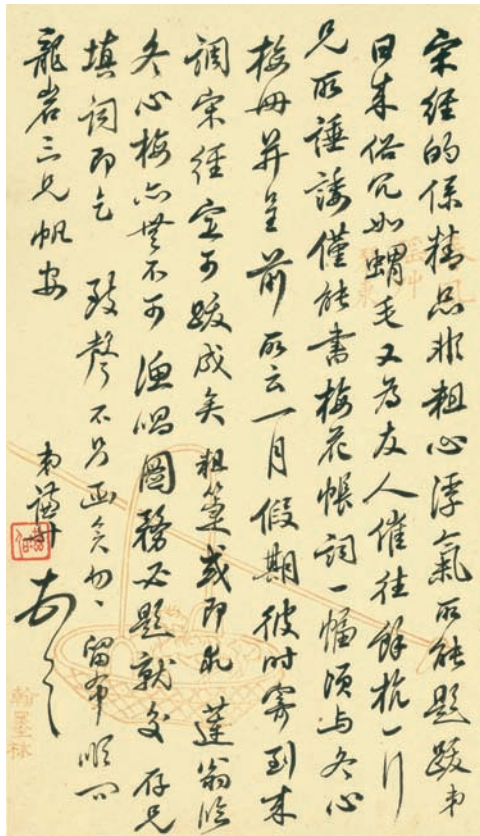 宋經的係精品非粗心浮氣所能題跋弟
日來俗冗如蝟毛又為友人催往餘杭一行
兄所諈諉僅能書梅花帳詞一幅頃与冬心
梅冊并呈前所云一月假期彼時寄到來
調宋經定可跋成矣粗箑或即乞蓮翁臨
冬心梅亦無不可漁唱圖務必題就交存兄
填詞即乞 致聲不另函矣匆〻留布順問
龍岩三兄帆安
弟
翰墨林